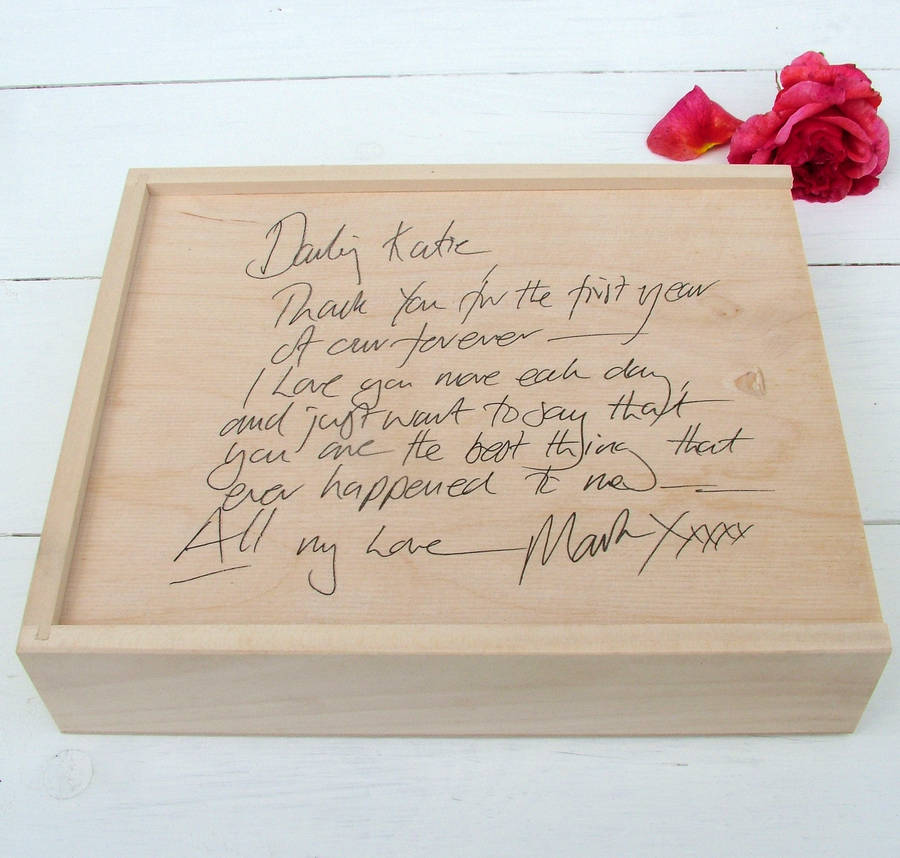 Darling Katie
Thank You for the first year
of our forever —
I Love you more each day,
and just want to say that
you are the best thing that
ever happened to me — —
All my Love — Mark Xxxxx